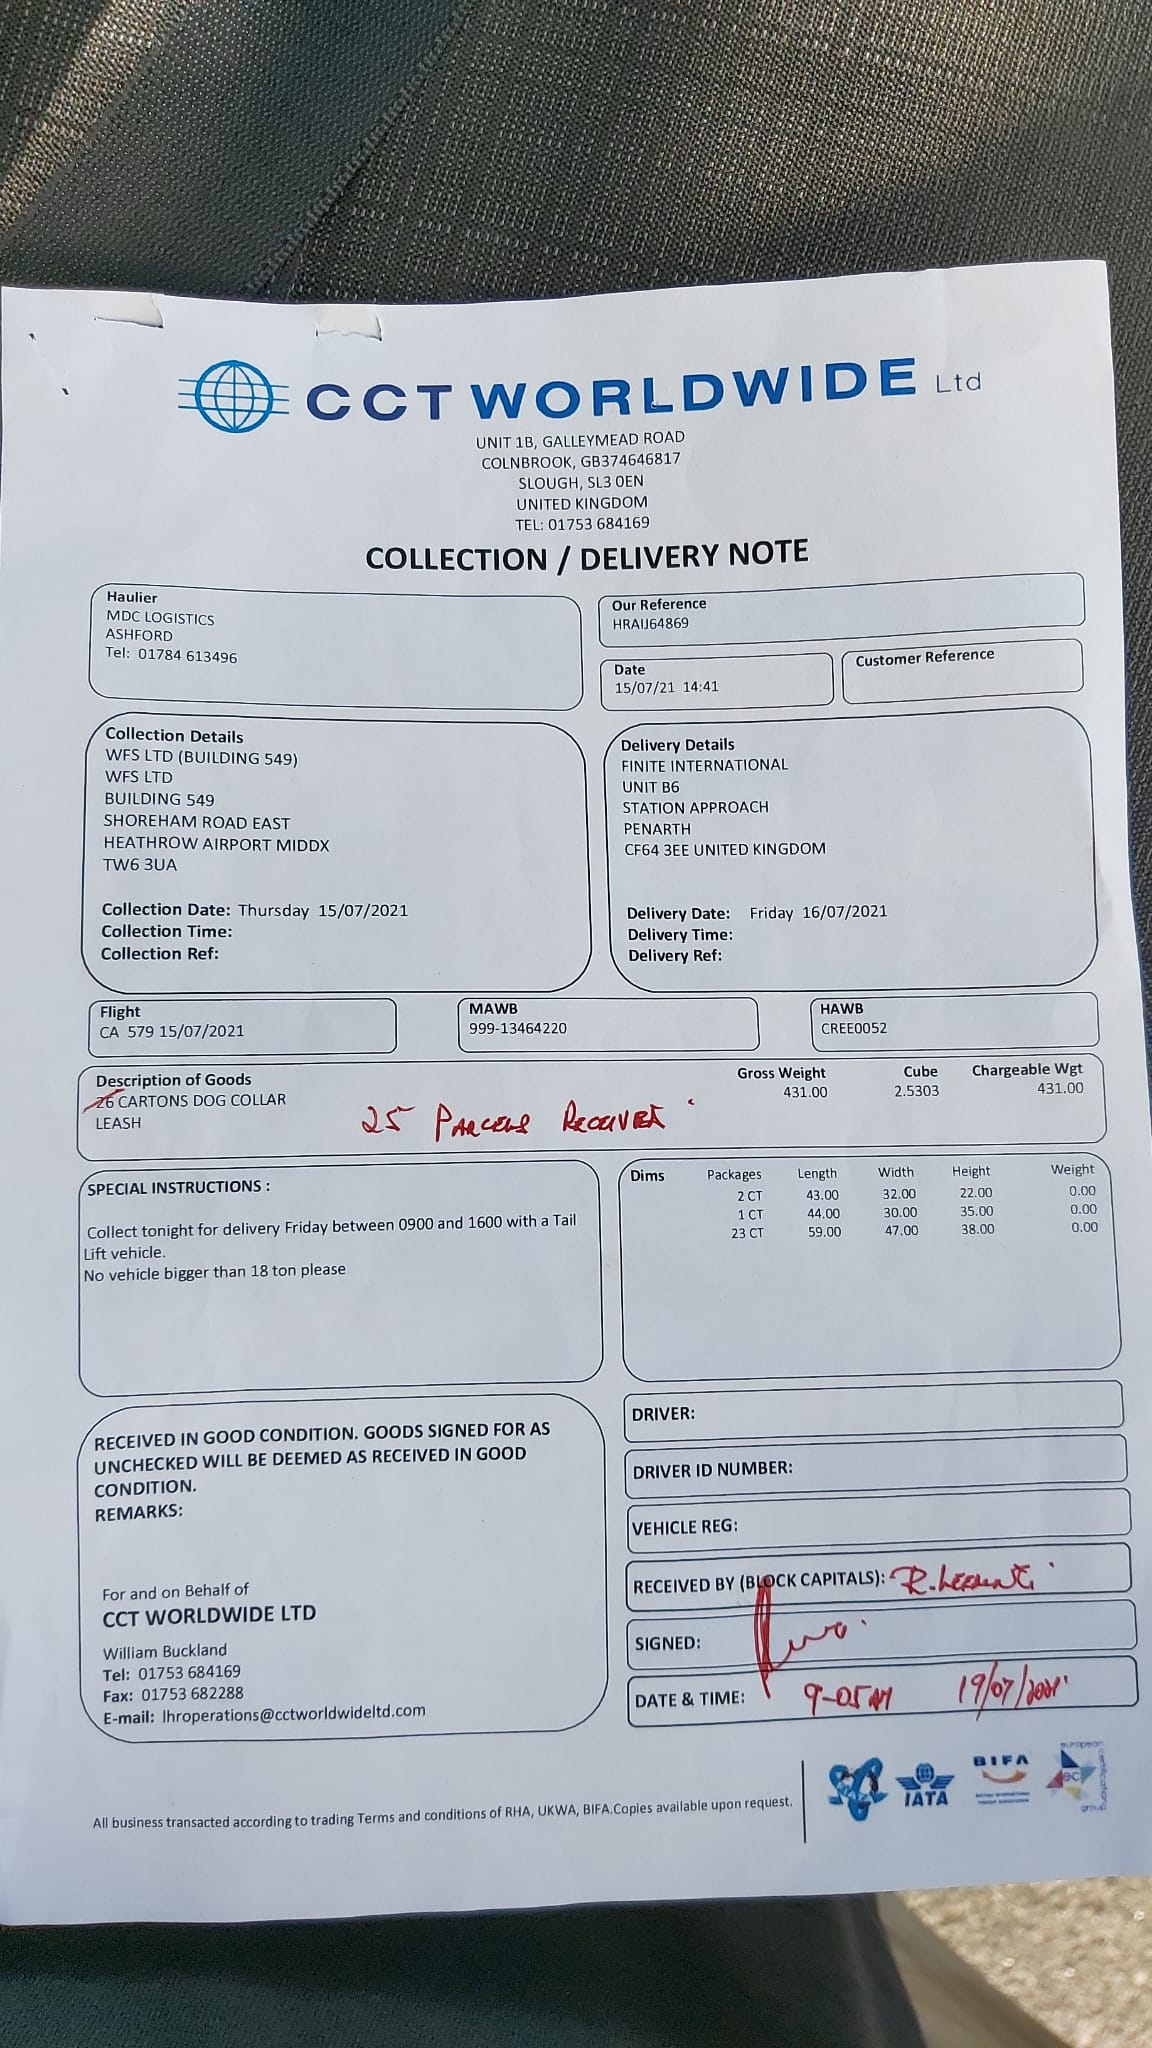 CCT WORLDWIDE Ltd
UNIT 1B, GALLEYMEAD ROAD
COLNBROOK, GB374646817
SLOUGH, SL3 0EN
UNITED KINGDOM
TEL: 01753 684169
COLLECTION / DELIVERY NOTE
Haulier
MDC LOGISTICS
ASHFORD
Tel: 01784 613496
Our Reference
HRAIJ64869
Date
15/07/21 14:41
Customer Reference
Collection Details
WFS LTD (BUILDING 549)
WFS LTD
BUILDING 549
SHOREHAM ROAD EAST
HEATHROW AIRPORT MIDDX
TW6 3UA
Collection Date: Thursday 15/07/2021
Collection Time:
Collection Ref:
Delivery Details
FINITE INTERNATIONAL
UNIT B6
STATION APPROACH
PENARTH
CF64 3EE UNITED KINGDOM
Delivery Date: Friday 16/07/2021
Delivery Time:
Delivery Ref:
Flight
CA 579 15/07/2021
MAWB
999-13464220
HAWB
CREE0052
Description of Goods
26 CARTONS DOG COLLAR
LEASH
25 PARCELS RECEIVED
Gross Weight Cube Chargeable Wgt
431.00 2.5303 431.00
SPECIAL INSTRUCTIONS :
Collect tonight for delivery Friday between 0900 and 1600 with a Tail
Lift vehicle.
No vehicle bigger than 18 ton please
Dims Packages Length Width Height Weight
2 CT 43.00 32.00 22.00 0.00
1 CT 44.00 30.00 35.00 0.00
23 CT 59.00 47.00 38.00 0.00
RECEIVED IN GOOD CONDITION. GOODS SIGNED FOR AS
UNCHECKED WILL BE DEEMED AS RECEIVED IN GOOD
CONDITION.
REMARKS:
For and on Behalf of
CCT WORLDWIDE LTD
William Buckland
Tel: 01753 684169
Fax: 01753 682288
E-mail: lhroperations@cctworldwideltd.com
DRIVER:
DRIVER ID NUMBER:
VEHICLE REG:
RECEIVED BY (BLOCK CAPITALS): R.
SIGNED:
DATE & TIME: 9-05 AM 19/07/2021
All business transacted according to trading Terms and conditions of RHA, UKWA, BIFA.Copies available upon request.
IATA
BIFA
european
ec
certification
group